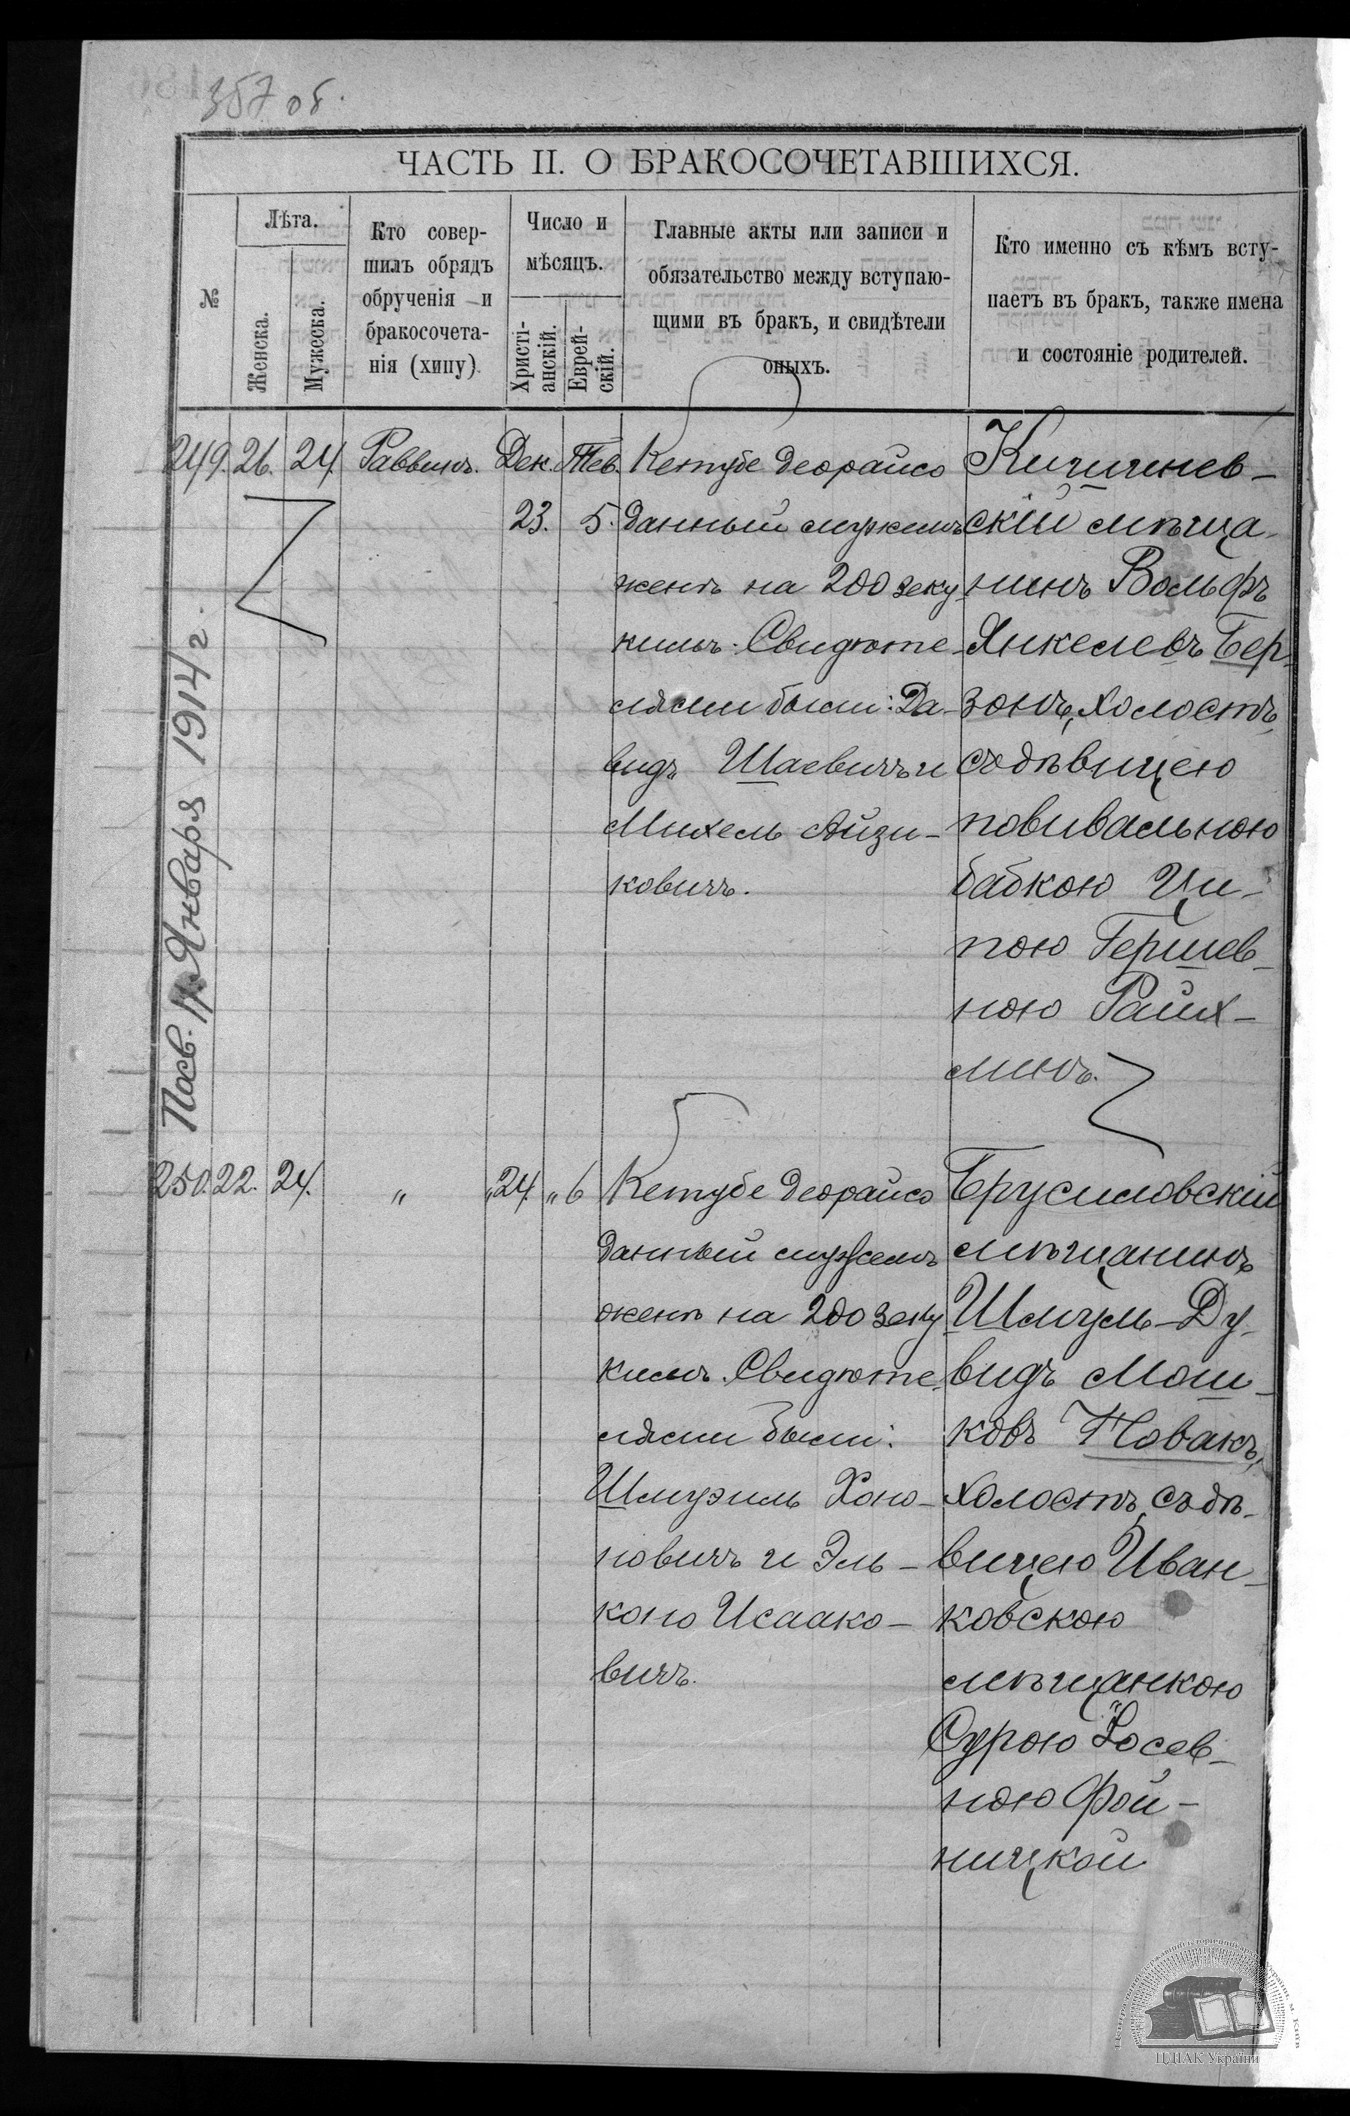 357 об.
ЧАСТЬ II. О БРАКОСОЧЕТАВШИХСЯ.
№
Лѣта.
Женска.
Мужеска.
Кто совер-
шилъ обрядъ
обрученія и
бракосочета-
нія (хипу)
Число и
мѣсяцъ.
Христі-
анскій.
Еврей-
скій.
Главные акты или записи и
обязательство между вступаю-
щими въ бракъ, и свидѣтели
оныхъ.
Кто именно съ кѣмъ всту-
паетъ въ бракъ, также имена
и состояніе родителей.
249. 26. 24. Раввинъ. Дек. Тев.
23. 5.
Кетубе деорайсо
данный мужемъ
женѣ на 200 зеку
кимъ. Свидѣте-
лями были: Да-
видъ Шаевичъ и
Михель Айзи-
ковичъ.
Кишинев-
скій мѣща-
нинъ Вольфъ
Янкелевъ Бер-
зонъ, холостъ,
съ дѣвицею
повивальною
бабкою Ци-
пою Гершев-
ною Райх-
минъ.
Посв. 17 Января 1914 г.
250. 22. 24. " " 24. " 6
Кетубе деорайсо
данный мужемъ
женѣ на 200 зеку
кимъ. Свидѣте-
лями были:
Шмуэль Хоно-
новичъ и Эль-
коно Исаако-
вичъ.
Брусиловскій
мѣщанинъ
Шмуль-Ду-
видъ Мош-
ковъ Новакъ,
холостъ, съ дѣ-
вицею Иван-
ковскою
мѣщанкою
Сурою Іосев-
ною Фой-
ницкой
ЦДІАК України